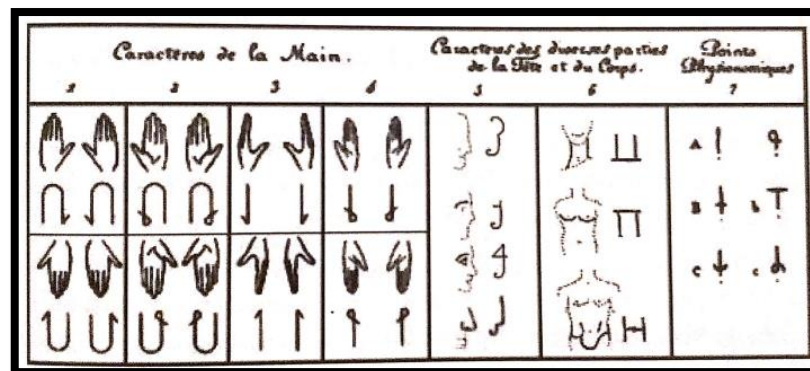 Caractères de la Main.
Caractères des diverses parties
de la Tête et du Corps.
Points
Physionomiques
1 2 3 4 5 6 7
A
B b
C c